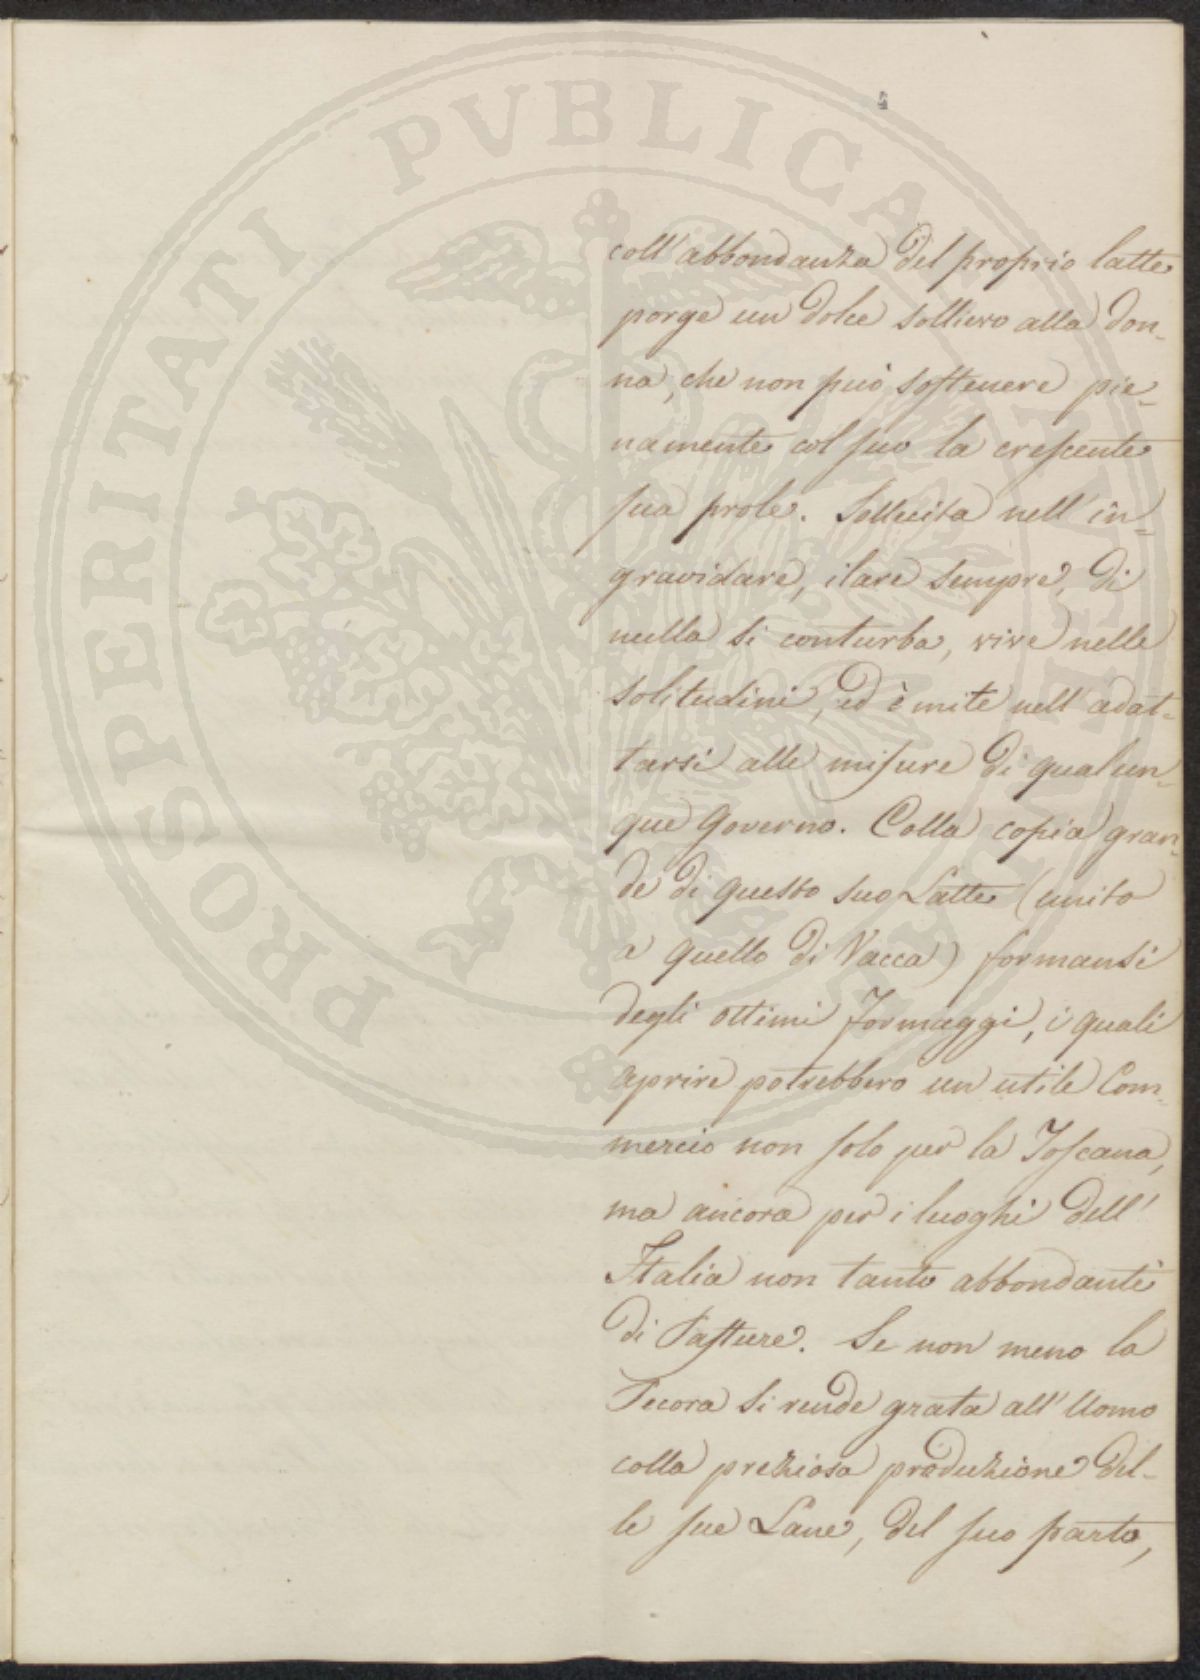 PROSPERITATI PUBLICAE
coll' abbondanza del proprio latte
porge un dolce sollievo alla don-
na, che non può sostenere pie-
namente col suo la crescente
sua prole. Sollecita nell' in-
gravidare, ilare sempre, di
nulla si conturba, vive nelle
solitudini, ed è mite nell' adat-
tarsi alle misure di qualun-
que Governo. Colla copia gran-
de di questo suo Latte (unito
a quello di Vacca) formansi
degli ottimi Formaggi, i quali
aprire potrebbero un utile Com-
mercio non solo per la Toscana,
ma ancora per i luoghi dell'
Italia non tanto abbondanti
di Pasture. Se non meno la
Pecora si rende grata all' Uomo
colla preziosa produzione del-
le sue Lane, del suo parto,